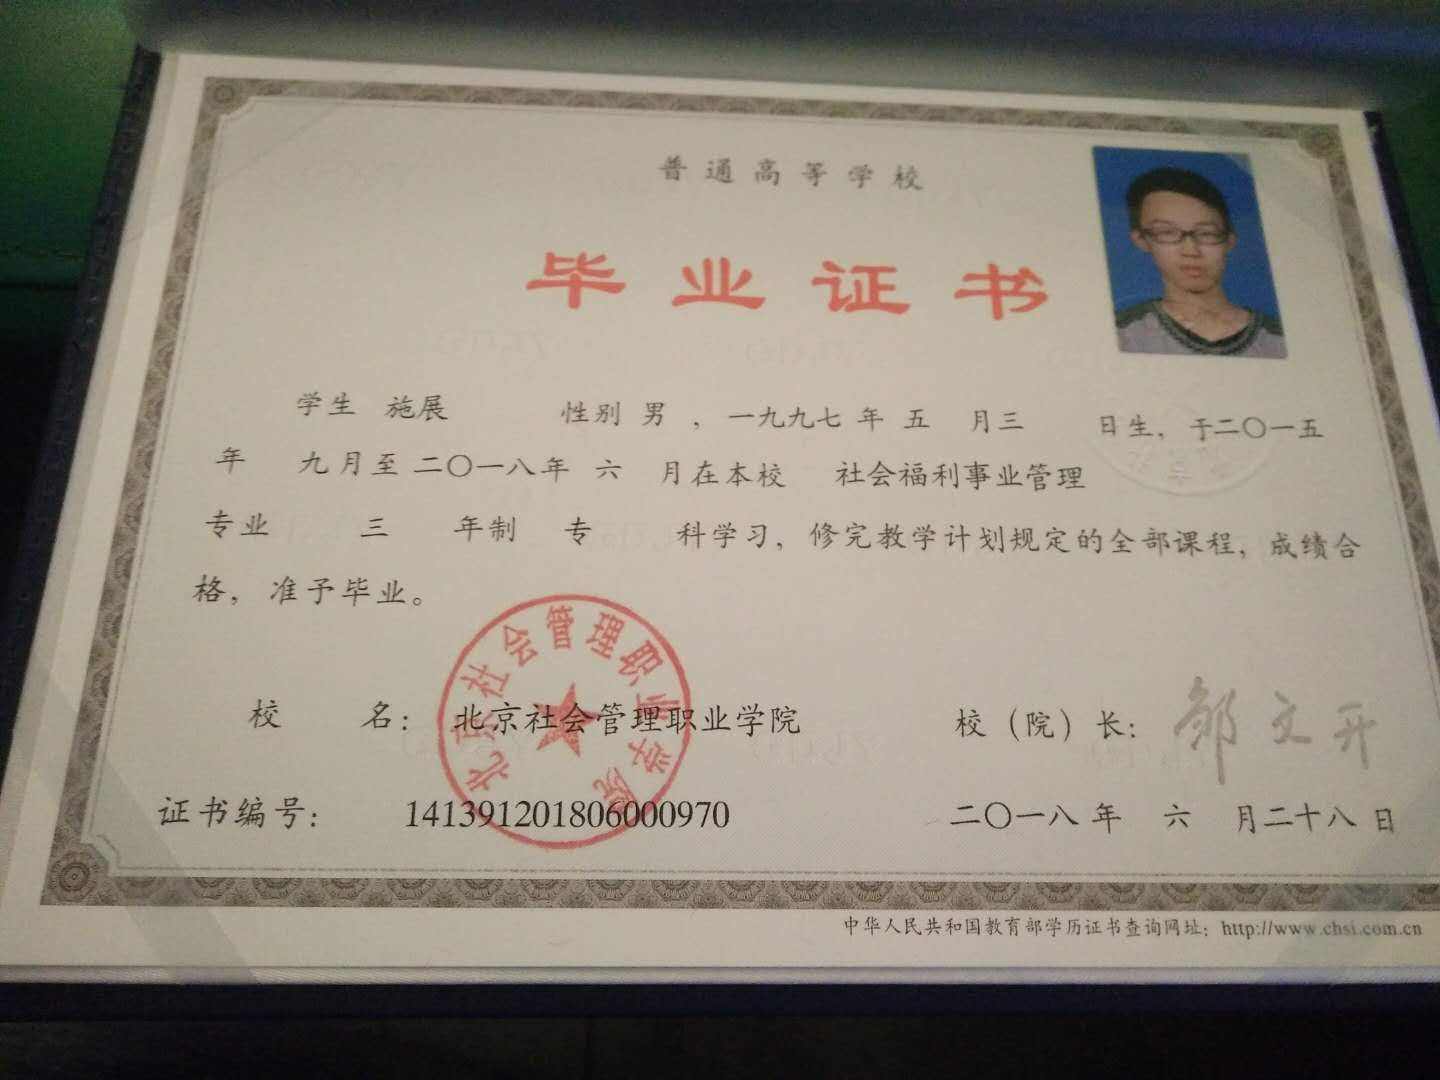 普通高等学校
毕业证书
学生 施展 性别 男 ，一九九七 年 五 月三 日生，于二〇一五
年 九月至二〇一八年 六 月在本校 社会福利事业管理
专业 三 年制 专 科学习，修完教学计划规定的全部课程，成绩合
格，准予毕业。
北京社会管理职业学院
校 名：北京社会管理职业学院 校（院）长：邹文开
证书编号：141391201806000970 二〇一八年 六 月二十八日
中华人民共和国教育部学历证书查询网址：http://www.chsi.com.cn